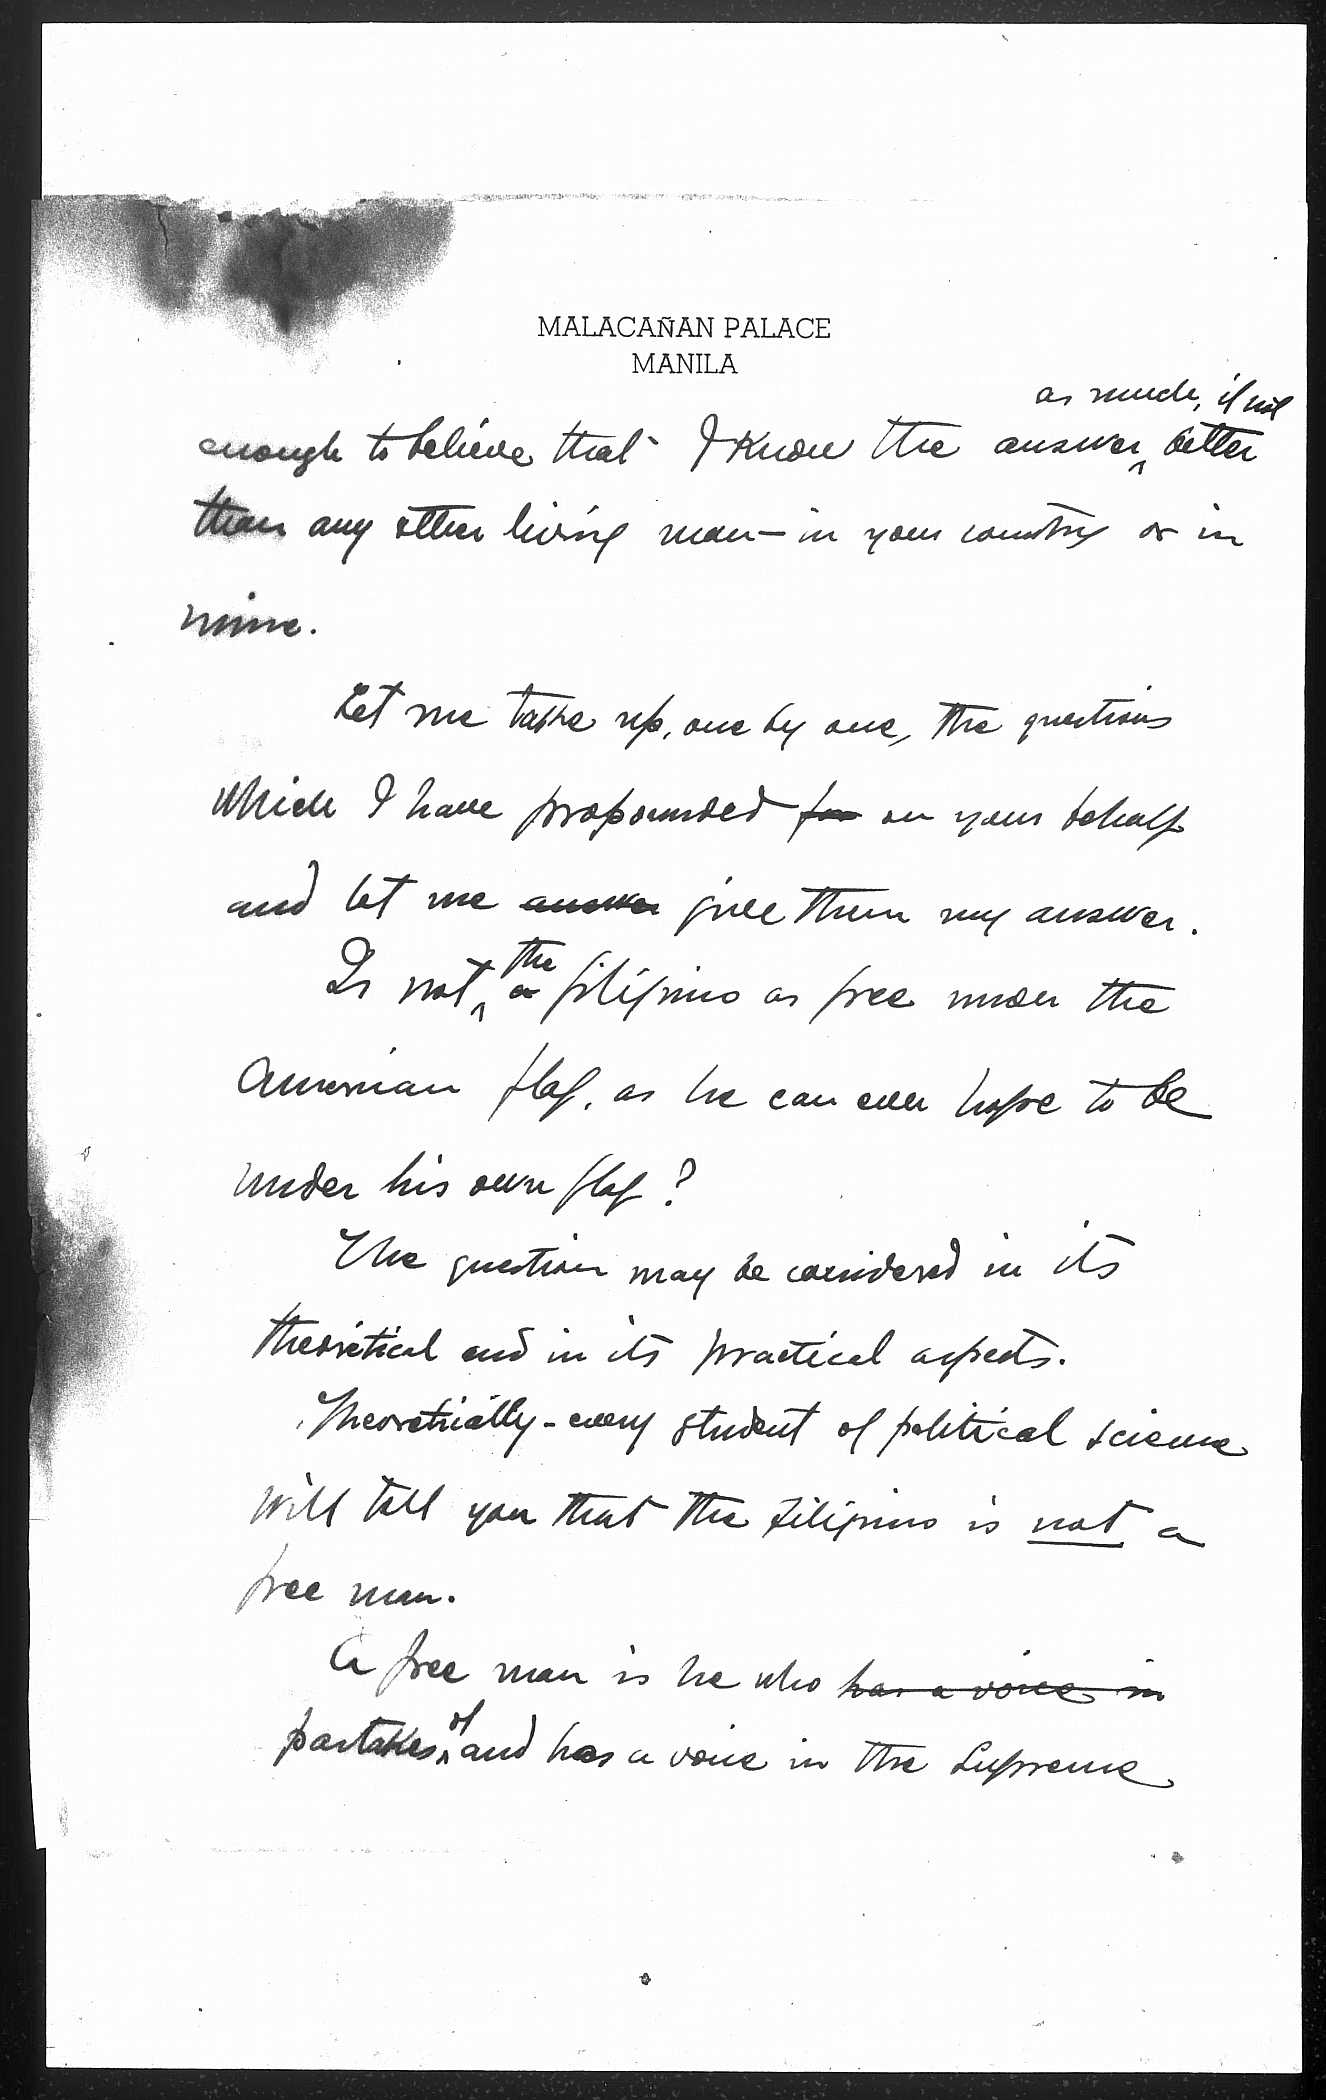 MALACAÑAN PALACE
MANILA
as much, if not
enough to believe that I know the answer, better
than any other living man — in your country or in
mine.
Let me take up, one by one, the questions
which I have propounded for on your behalf
and let me answer give them my answer.
the
Is not a filipino as free under the
American flag, as he can ever hope to be
under his own flag?
The question may be considered in its
theoretical and in its practical aspects.
Theoretically - every student of political science
will tell you that the Filipino is not a
free man.
A free man is he who has a voice in
of
partakes and has a voice in the Supreme